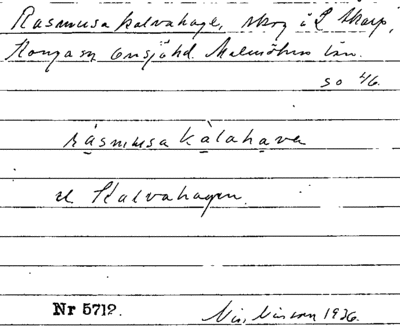 Rasmusa kalvahage, skog i L Skarp,
Konga sn Onsjö hd. Malmöhus län.
SO 4/6.
rásmusa kàlahava
el Kalvahagen.
Nr 5712.
Nils Nilsson 1936.